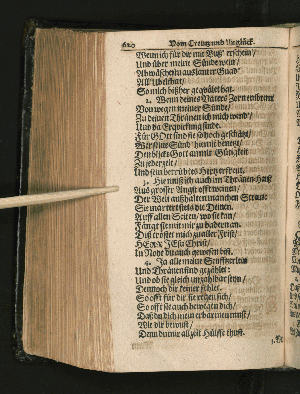 620 Vom Creutz und Unglück.
Wenn ich für dir mit Buß' erschein/
Und über meine Sünde wein/
Abwäschen aus lauter Gnad'
All Ubelthat/
So mich bißher gequälet hat.
2. Wenn deines Vaters Zorn entbrant
Von wegen meiner Sünde/
Zu deinen Thränen ich mich wend/
Und da Erquickung finde.
Für GOtt sind sie so hoch geschätzt/
Wer seine Sünd' hiemit benetzt/
Den blickt Gott an mit Gütigkeit
Zu jederzeit/
Und sein betrübtes Hertz erfreut.
3. Hie muß ich auch im Thränen-Hauß
Aus grosser Angst offt weinen/
Der Welt außhalten manchen Strauß:
Sie martert stets die Deinen.
Auff allen Seiten/ wo sie kan/
Fängt sie mit mir zu hadern an.
Diß tröstet mich zu aller Frist/
HErr JEsu Christ/
In Nothe du auch gewesen bist.
4. Ja alle meine Seufftzerlein
Und Thränen sind gezählet:
Und ob sie gleich unzahlbar seyn/
Dennoch dir keiner fehlet.
So offt für dir sie regen sich/
So offt sie auch bewegen dich/
Daß du dich mein erbarmen must/
Wie dir bewust/
Denn du mir allzeit Hülffe thust.